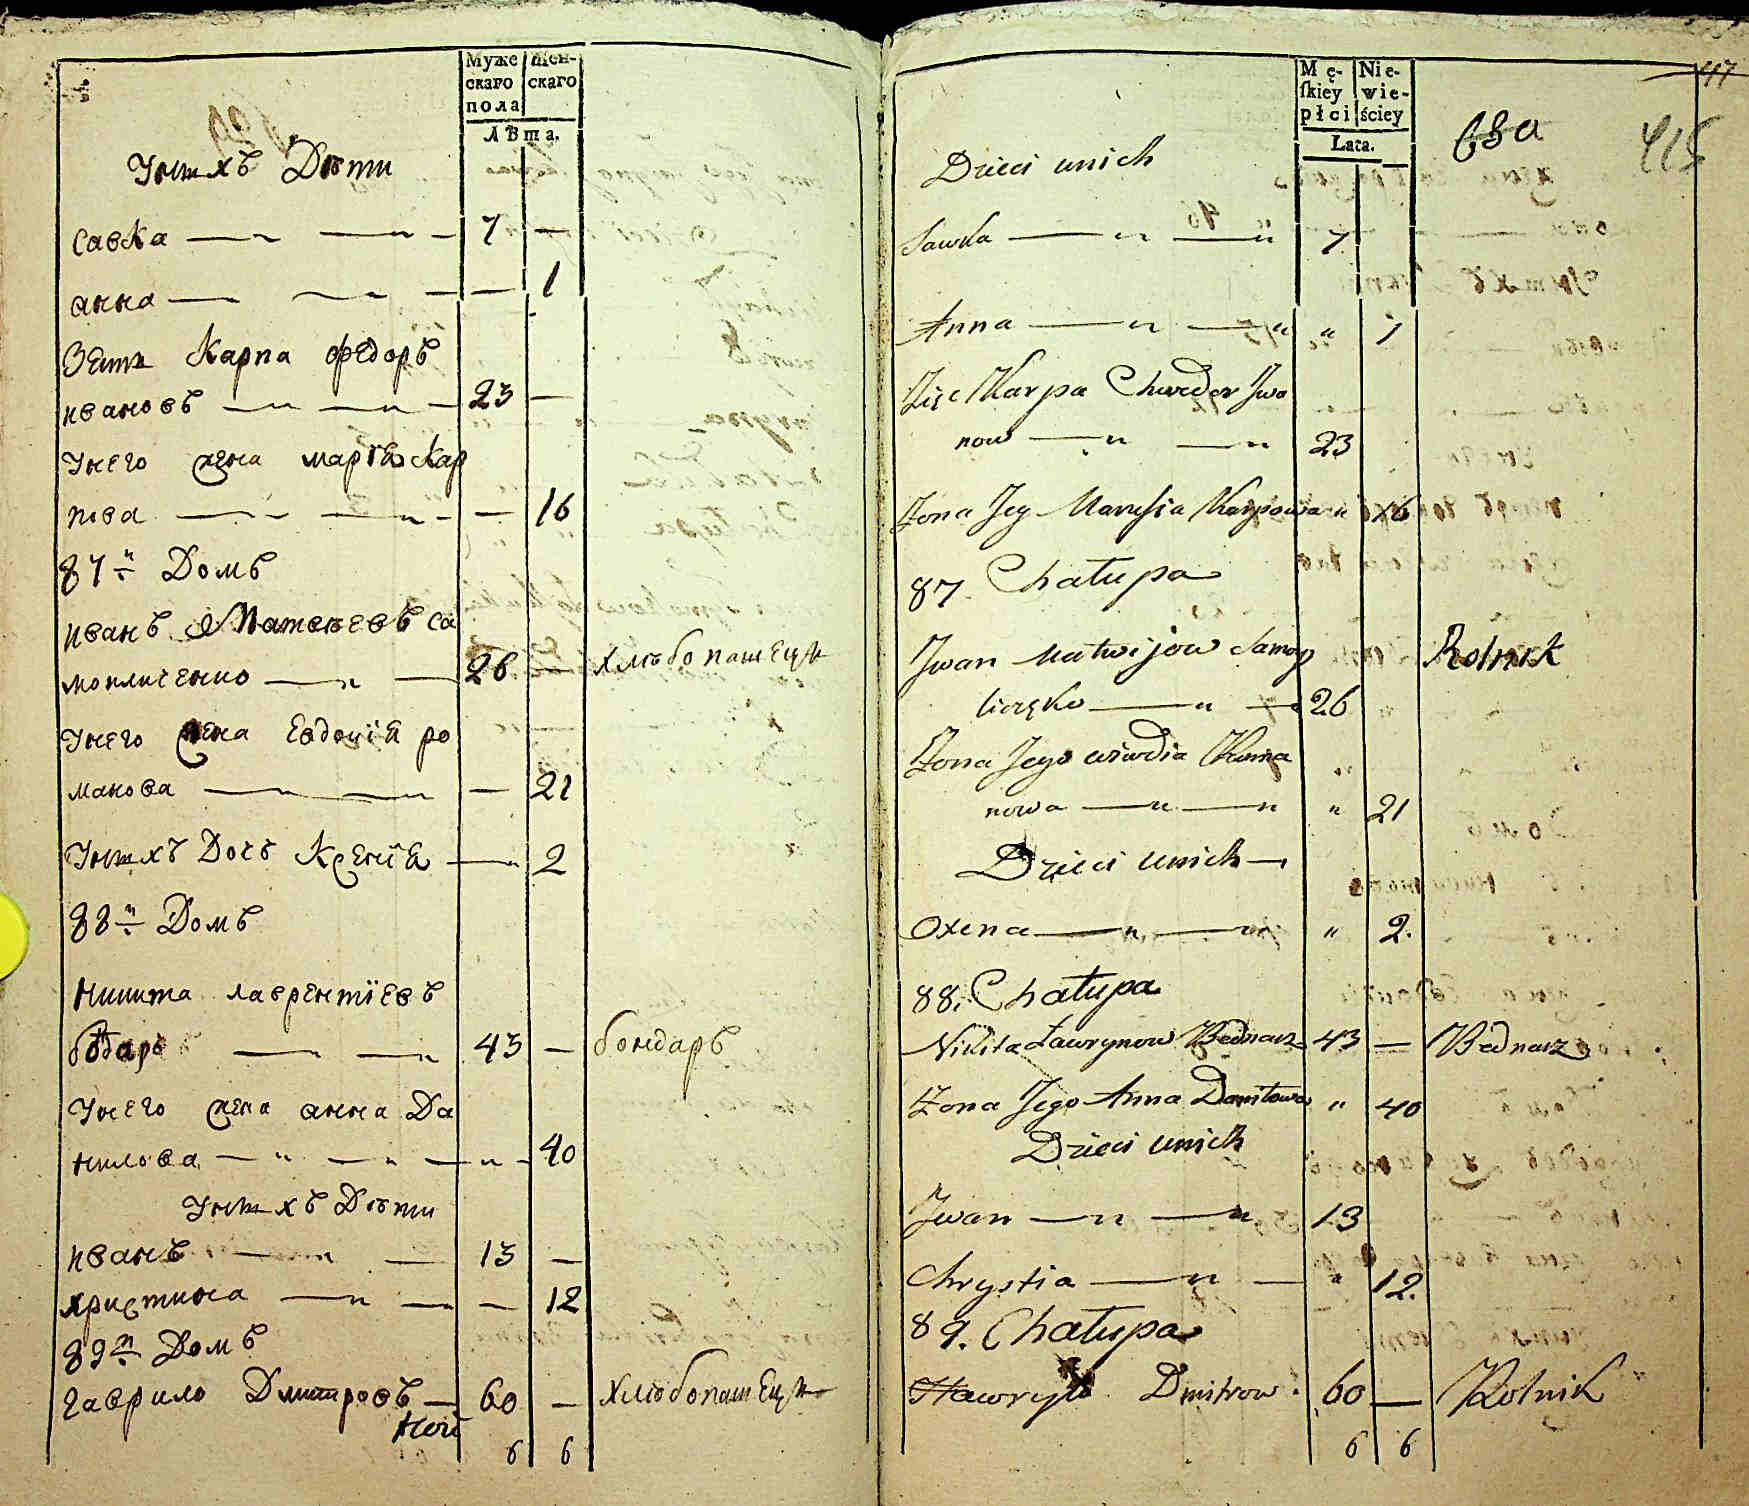 Муже скаго пола
Жен- скаго
Лѣта.
Унихъ Дѣти
Савка 7 —
анна — 1
Зять Карпа Федоръ
Ивановъ 23 —
Унего жена Марія Кар
пова — 16
87й Домъ
Иванъ Матвѣевъ Са
моплченко 26 Хлѣбопашецъ
Унего жена Евдокія Ро
манова — 21
Унихъ Дочь Ксенія 2
88й Домъ
Никита Лаврентіевъ
бодарь 43 — бондаръ
Унего жена анна Да
нилова 40
Унихъ Дѣти
Иванъ 13 —
Христина — 12
89й Домъ
Гаврило Дмитровъ — 60 — Хлѣбопашецъ
6 6
Mę- skiey płci
Nie- wie- ściey
Lata.
Dzieci unich
Sawka 7
Anna " 1
Zięc Karpa Chwedor Iwa
now 23
Żona Jeg Marusia Karpowa " 16
87. Chałupa
Iwan Matwijow Samop
liczęko 26 Rolnik
Żona Jego Eiwdia Roma
nowa " 21
Dzieci unich
Oxena " 2.
88. Chałupa
Nikita Ławrynow Bednarz 43 — Bednarz
Żona Jego Anna Daniłowa " 40
Dzieci unich
Iwan 13
Chrystia " 12.
89. Chałupa
Hawryło Dmitrow 60 — Rolnik
6 6
117
415